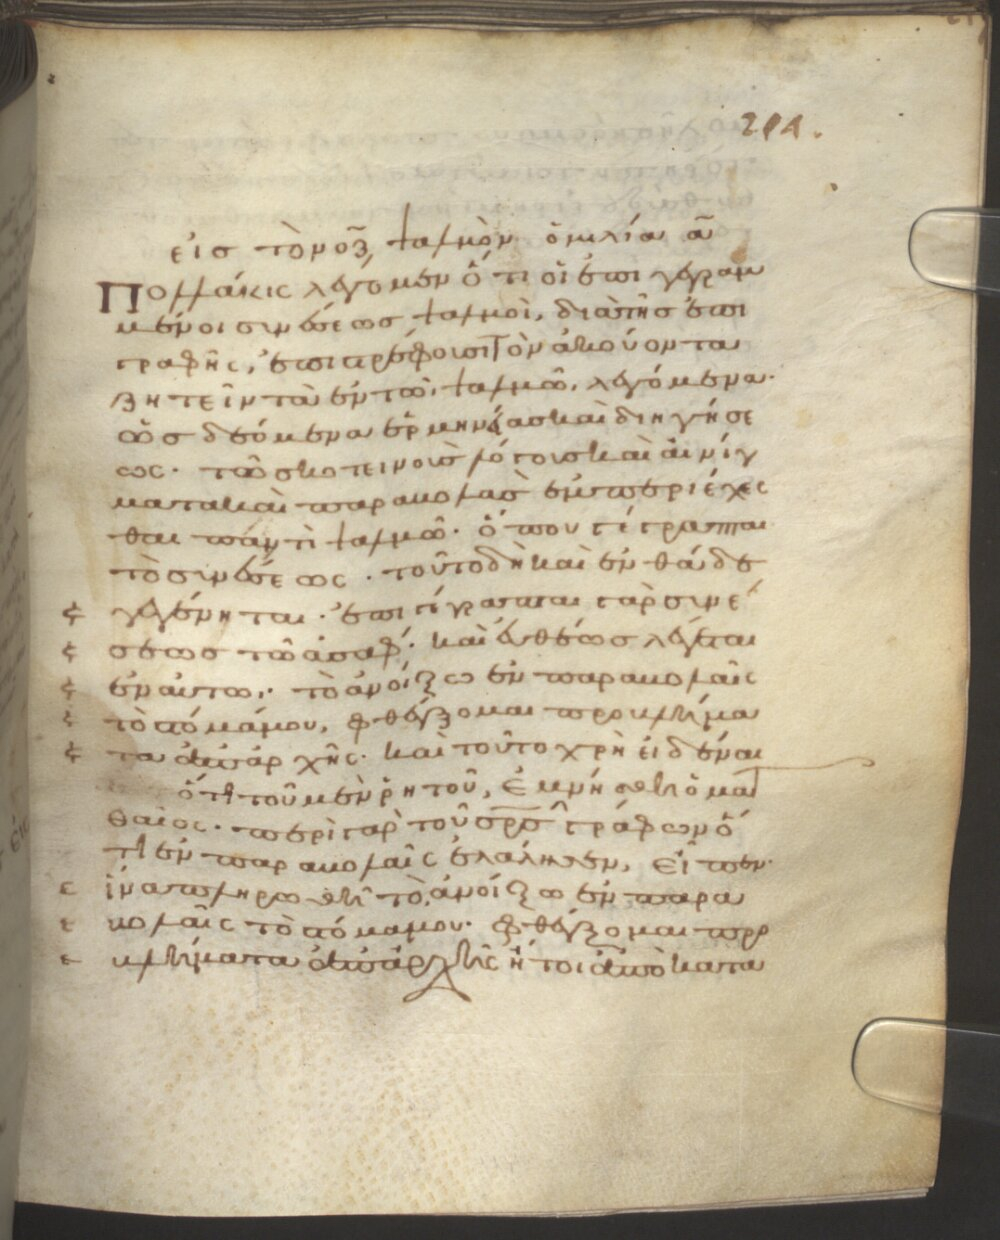 214.
εἰς τὸν οζ ψαλμὸν ὁμιλία α
Πολλάκις λέγομεν ὅτι οἱ ἐπιγεγραμ
μένοι συνέσεως ψαλμοὶ, διὰ τῆς ἐπι
γραφῆς, ἐπιστρέφουσι τὸν ἀκούοντα
ζητεῖν τὰ ἐν τῶ ψαλμῶ, λεγόμενα.
ὡς δεόμενα ἑρμηνείας καὶ διηγήσε
ως. τῶ σκοτεινοὺς λόγους καὶ αἰνίγ
ματα καὶ παραβολὰς ἐμπεριέχεσ
θαι παντὶ ψαλμῶ. ὅπου γέγραπται
τὸ συνέσεως. τοῦτο δὴ καὶ ἐνθάδε
γεγένηται. ἐπιγέγραπται γὰρ συνέ
σεως τῶ ἀσάφ. καὶ εὐθέως λέγεται
ἐν αὐτῶ. τὸ ἀνοίξω ἐν παραβολαῖς
τὸ στόμα μου, φθέγξομαι προβλήμα
τα ἀπ ἀρχῆς. καὶ τοῦτο χρὴ εἰδέναι
ὅτι τοῦ μὲν ῥητοῦ, ἐμνήσθη ὁ ματ
θαῖος. περὶ γὰρ τοῦ σρσ γράφων ὅ
τι ἐν παραβολαῖς ἐλάλησεν, εἶπεν.
ἵνα πληρωθῆ τὸ, ἀνοίξω ἐν παρα
βολαῖς τὸ στόμα μου. φθέγξομαι προ
βλήματα ἀπ ἀρχῆς ἤτοι ἀπὸ κατα